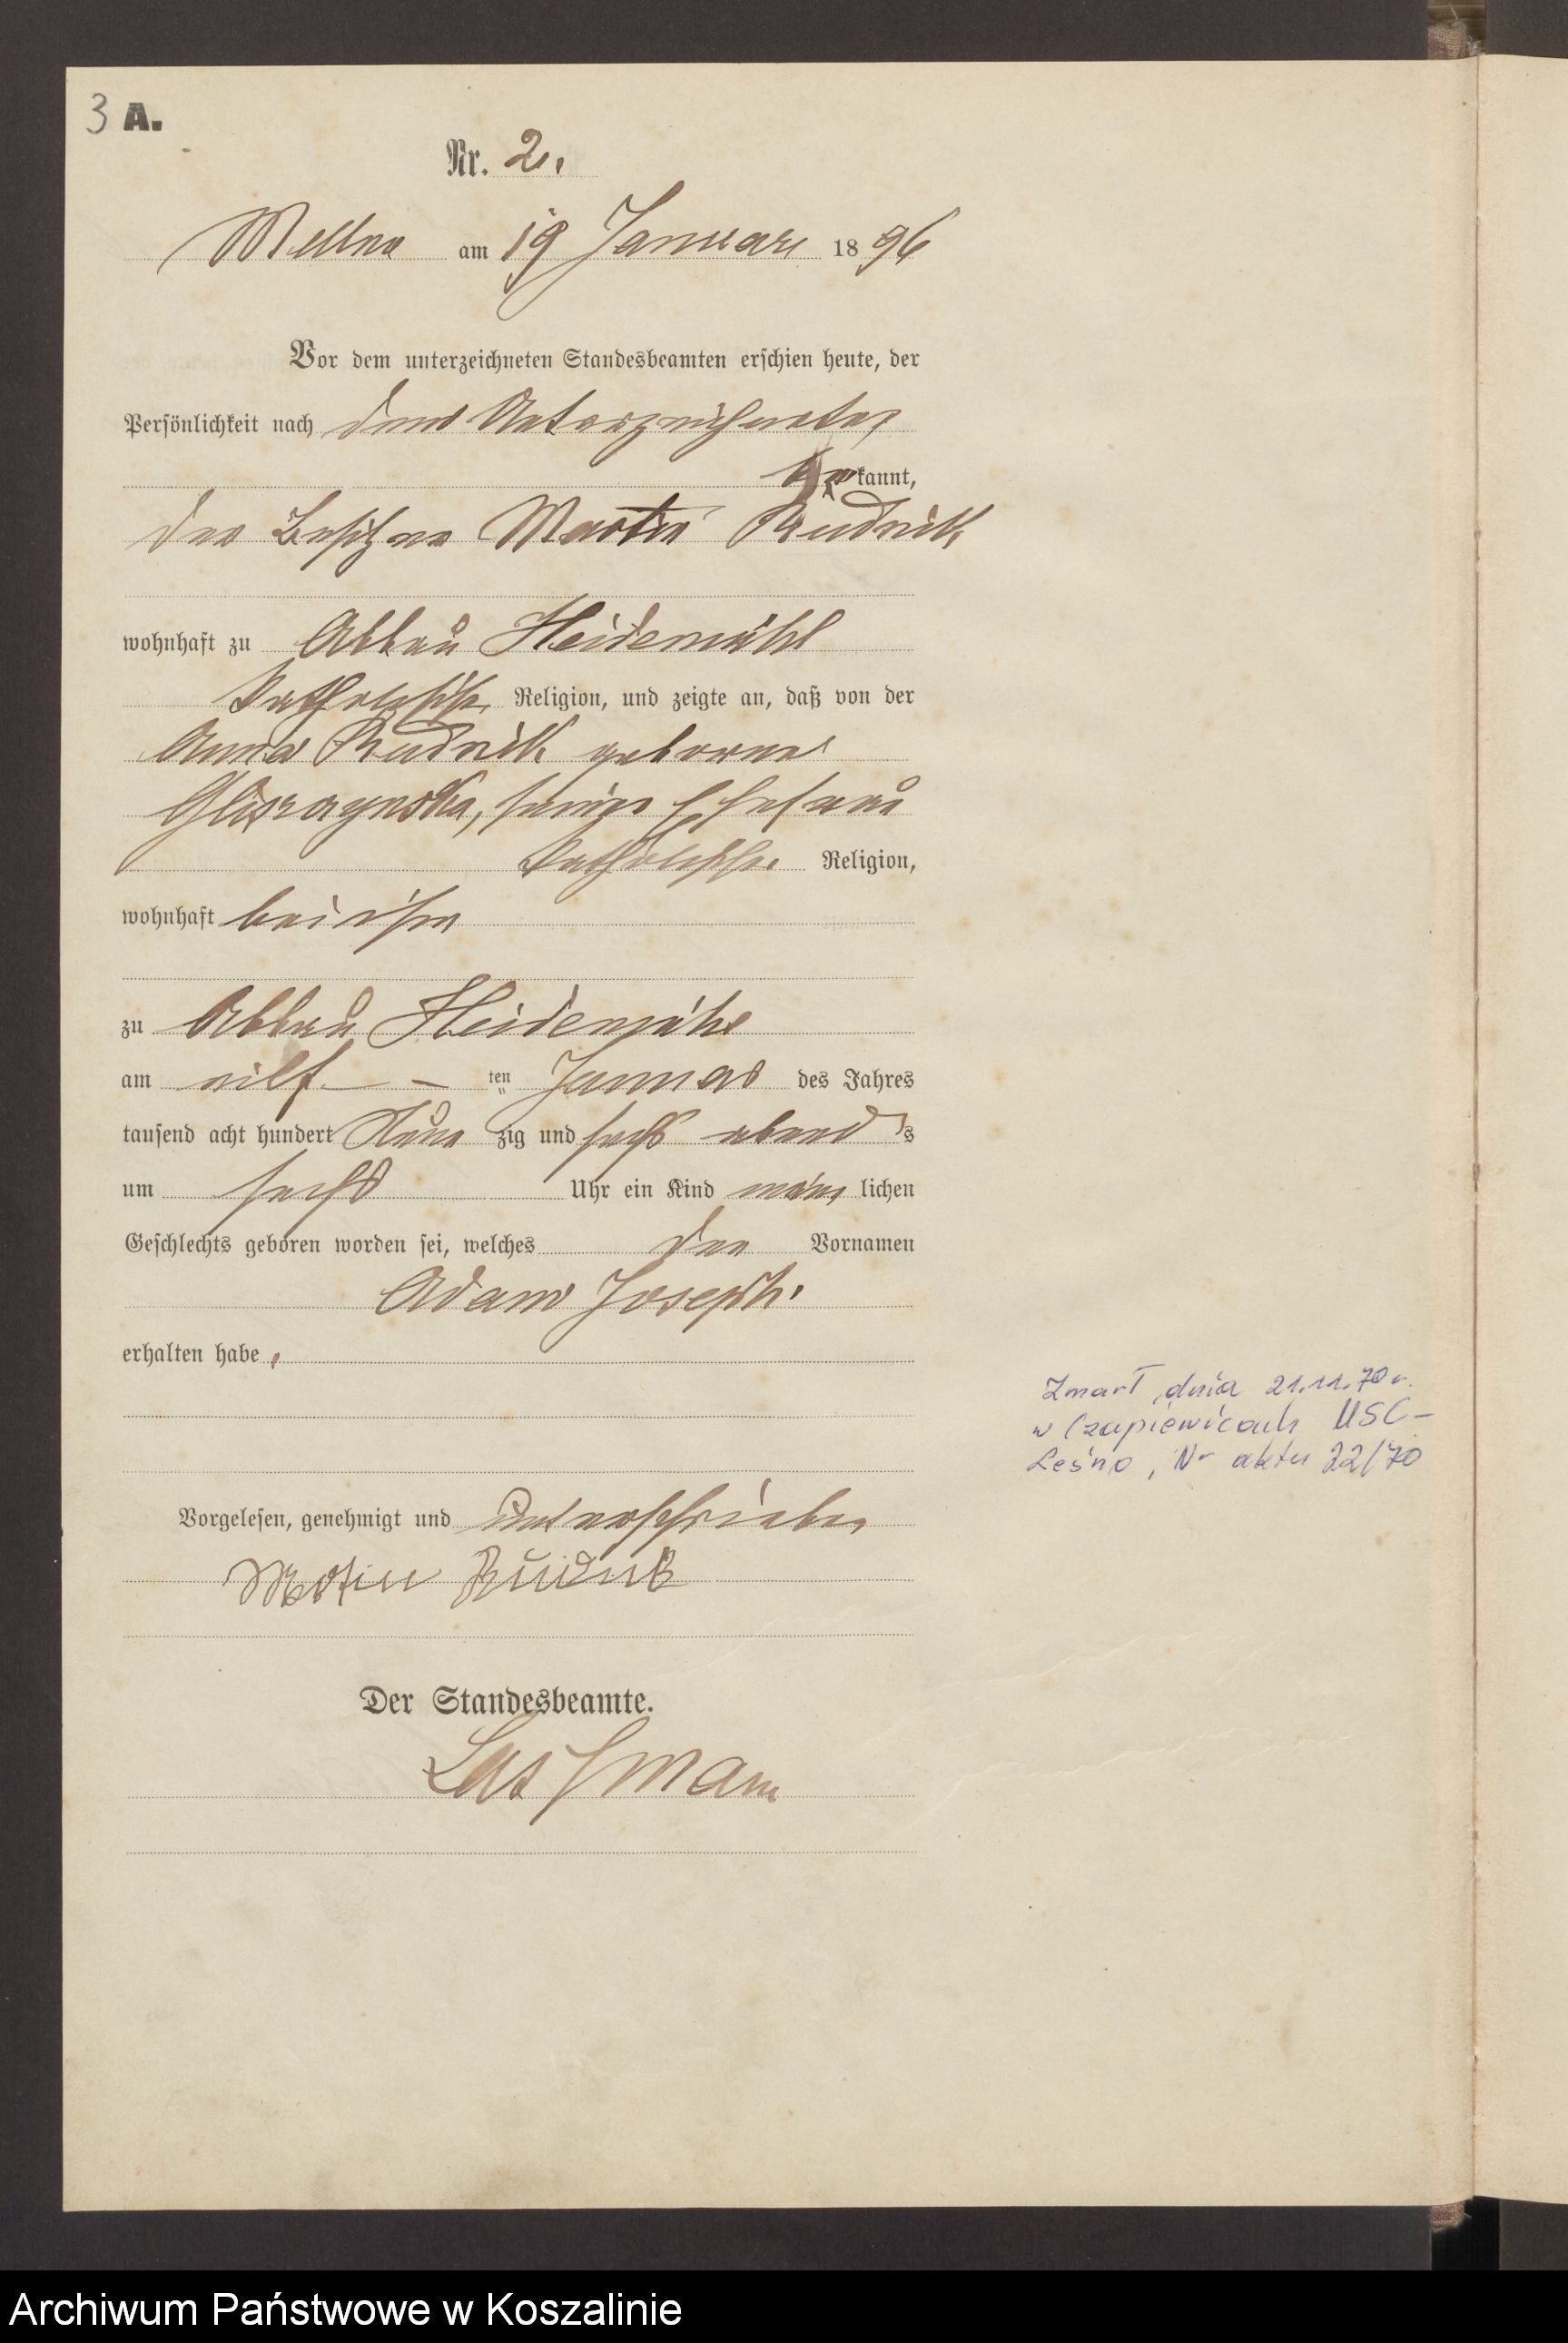 3 A.
Nr. 2.
Mellno am 19 Januar 1896
Vor dem unterzeichneten Standesbeamten erschien heute, der
Persönlichkeit nach dem Unterzeichneten
be kannt,
der Besitzer Martin Rudnik
wohnhaft zu Abbau Heidemühl
katholischer Religion, und zeigte an, daß von der
Anna Rudnik geborene
seiner Ehefrau
katholischer Religion,
wohnhaft bei ihm
zu Abbau Heidemühl
am eilf ten Januar des Jahres
tausend acht hundert Neun zig und sechs abend s
um sechs Uhr ein Kind männ lichen
Geschlechts geboren worden sei, welches den Vornamen
Adam Joseph
erhalten habe.
Zmarł dnia 21.11.70 r.
w Czapiewicach USC-
Leśno, Nr aktu 22/70
Vorgelesen, genehmigt und unterschrieben
Martin Rudnik
Der Standesbeamte.
Archiwum Państwowe w Koszalinie